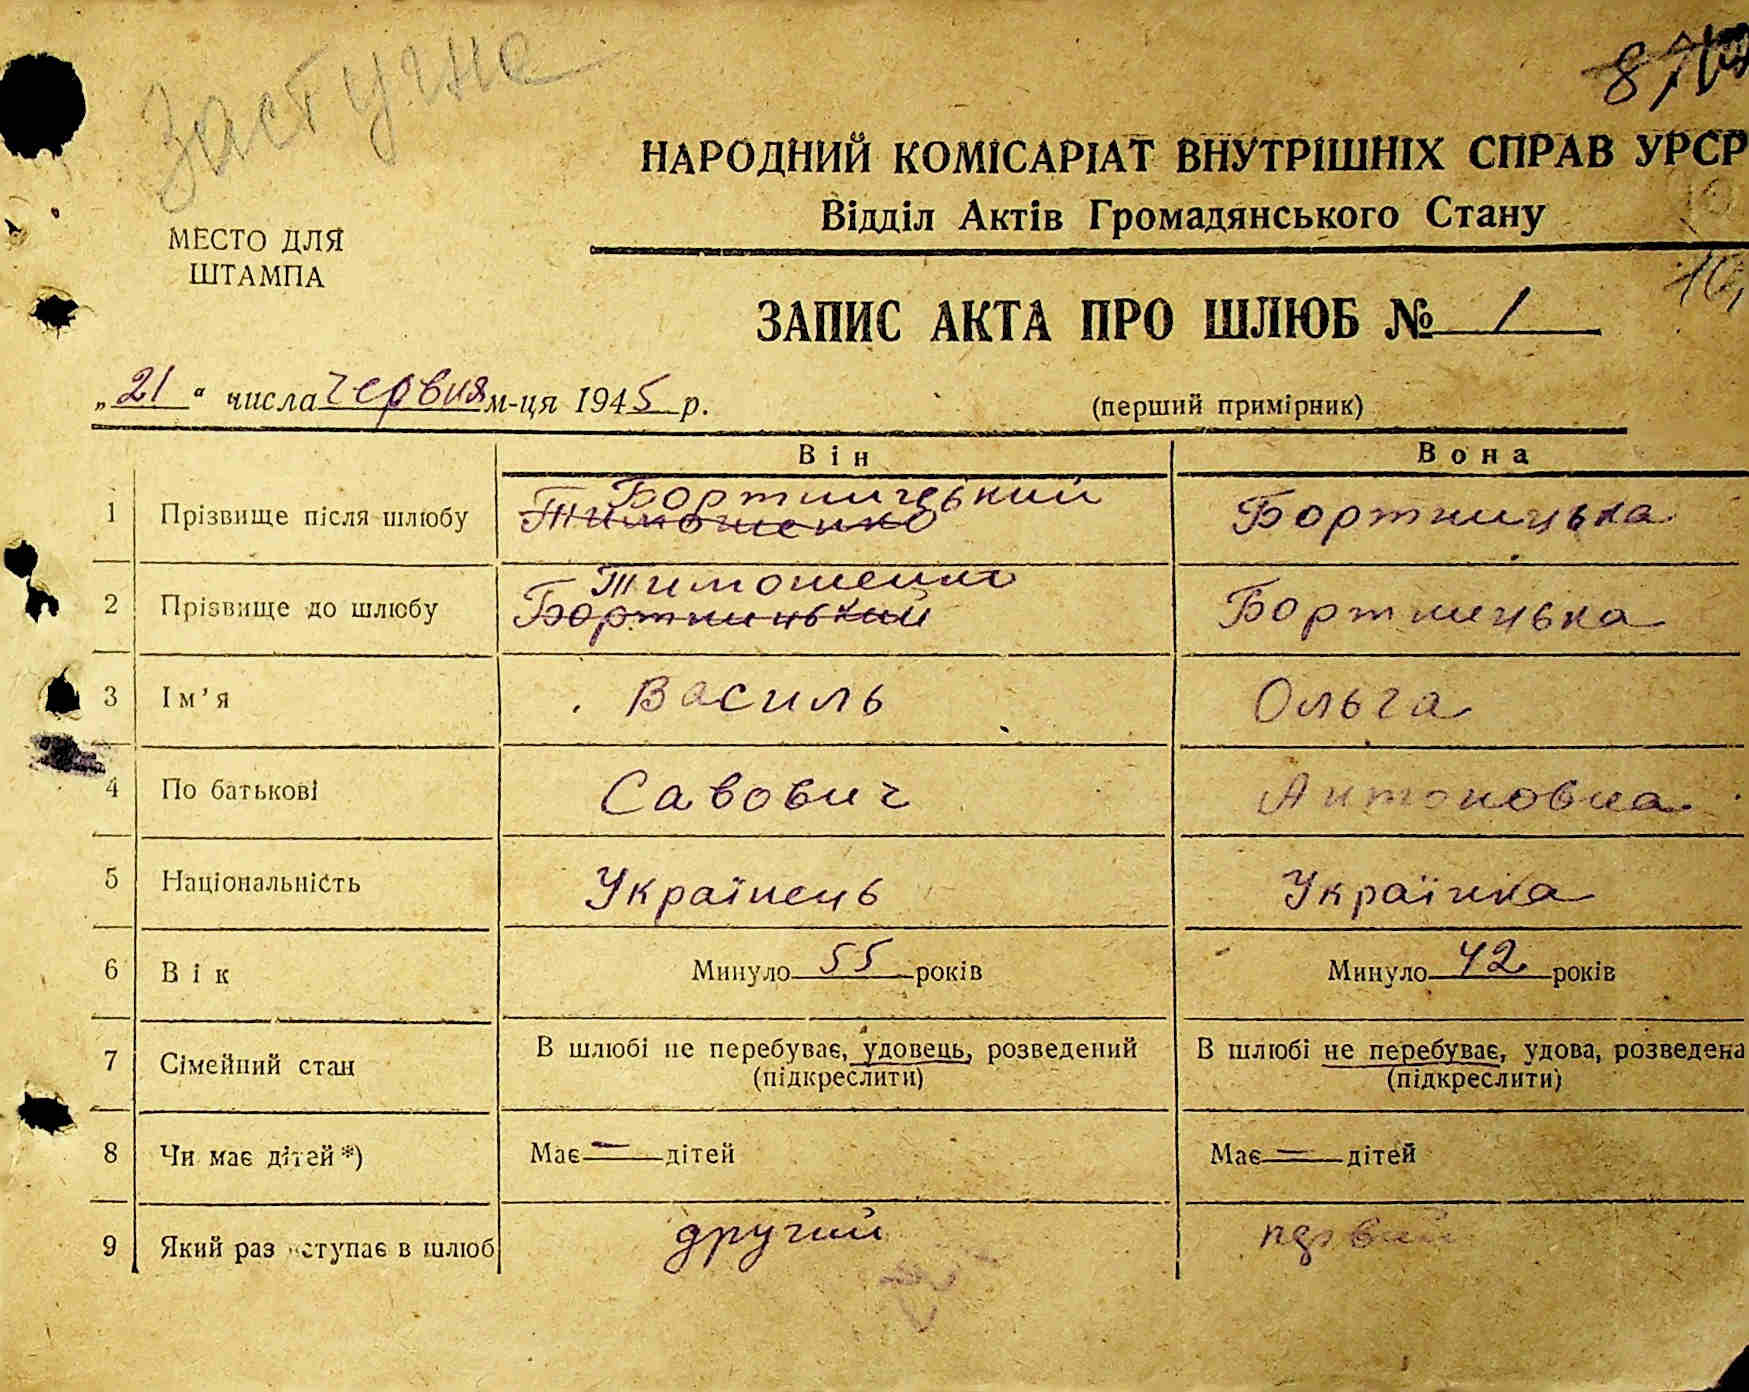 Застугне
НАРОДНИЙ КОМІСАРІАТ ВНУТРІШНІХ СПРАВ УРСР
Відділ Актів Громадянського Стану
МЕСТО ДЛЯ
ШТАМПА
ЗАПИС АКТА ПРО ШЛЮБ № 1
„21“ числа червня м-ця 1945 р.
(перший примірник)
Він Вона
1 Прізвище після шлюбу Тимошенко Бортницький Бортницька
2 Прізвище до шлюбу Бортницький Тимошенко Бортницька
3 Ім'я Василь Ольга
4 По батькові Савович Антоновна
5 Національність Українець Українка
6 Вік Минуло 55 років Минуло 42 років
7 Сімейний стан В шлюбі не перебуває, удовець, розведений В шлюбі не перебуває, удова, розведена
(підкреслити) (підкреслити)
8 Чи має дітей*) Має — дітей Має — дітей
9 Який раз вступає в шлюб другий первий